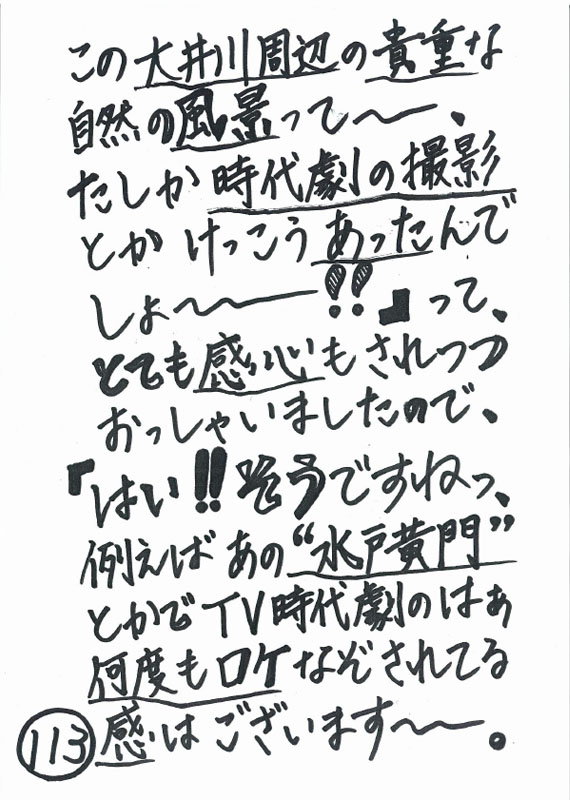 この大井川周辺の貴重な
自然の風景って〜〜、
たしか時代劇の撮影
とか けっこう あったんで
しょ〜〜〜!!』って、
とても感心もされつつ
おっしゃいましたので、
『はい!!そうですねっ、
例えば あの“水戸黄門”
とかでTV時代劇のはぁ
何度もロケなぞされてる
113 感はございます〜〜。